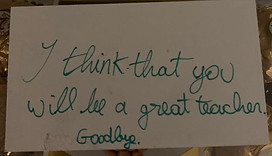 I think that you
will be a great teacher.
Goodbye.